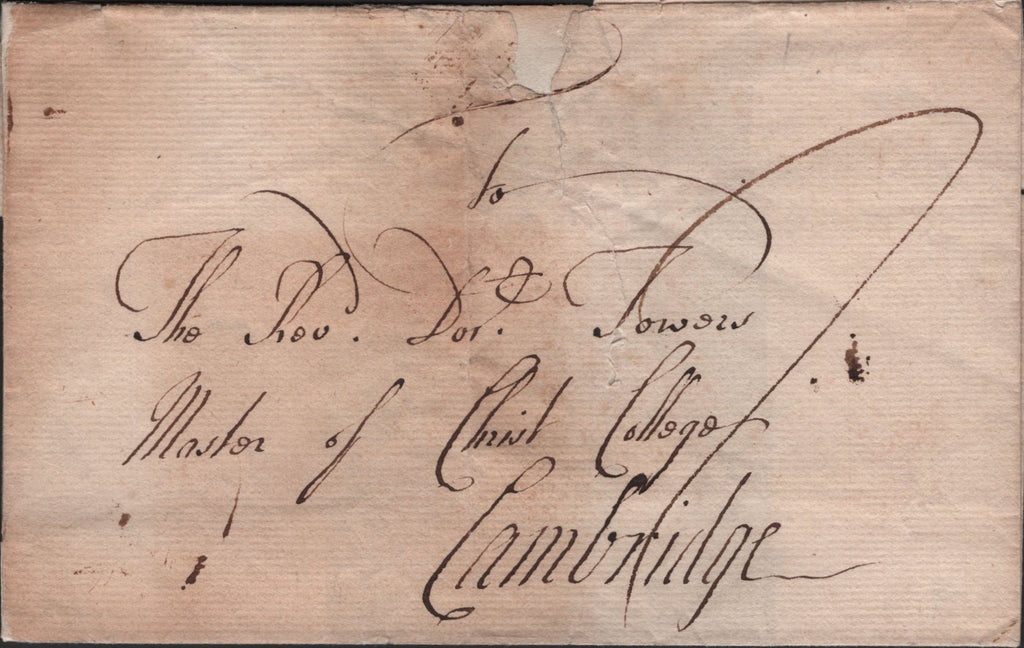 to
The Rev. Dor. Towers
Master of Christ College
Cambridge